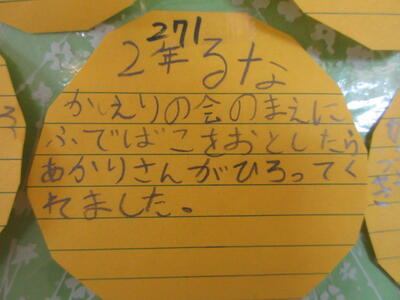 271
2年るな
かえりの会のまえに
ふでばこをおとしたら
あかりさんがひろってく
れました。